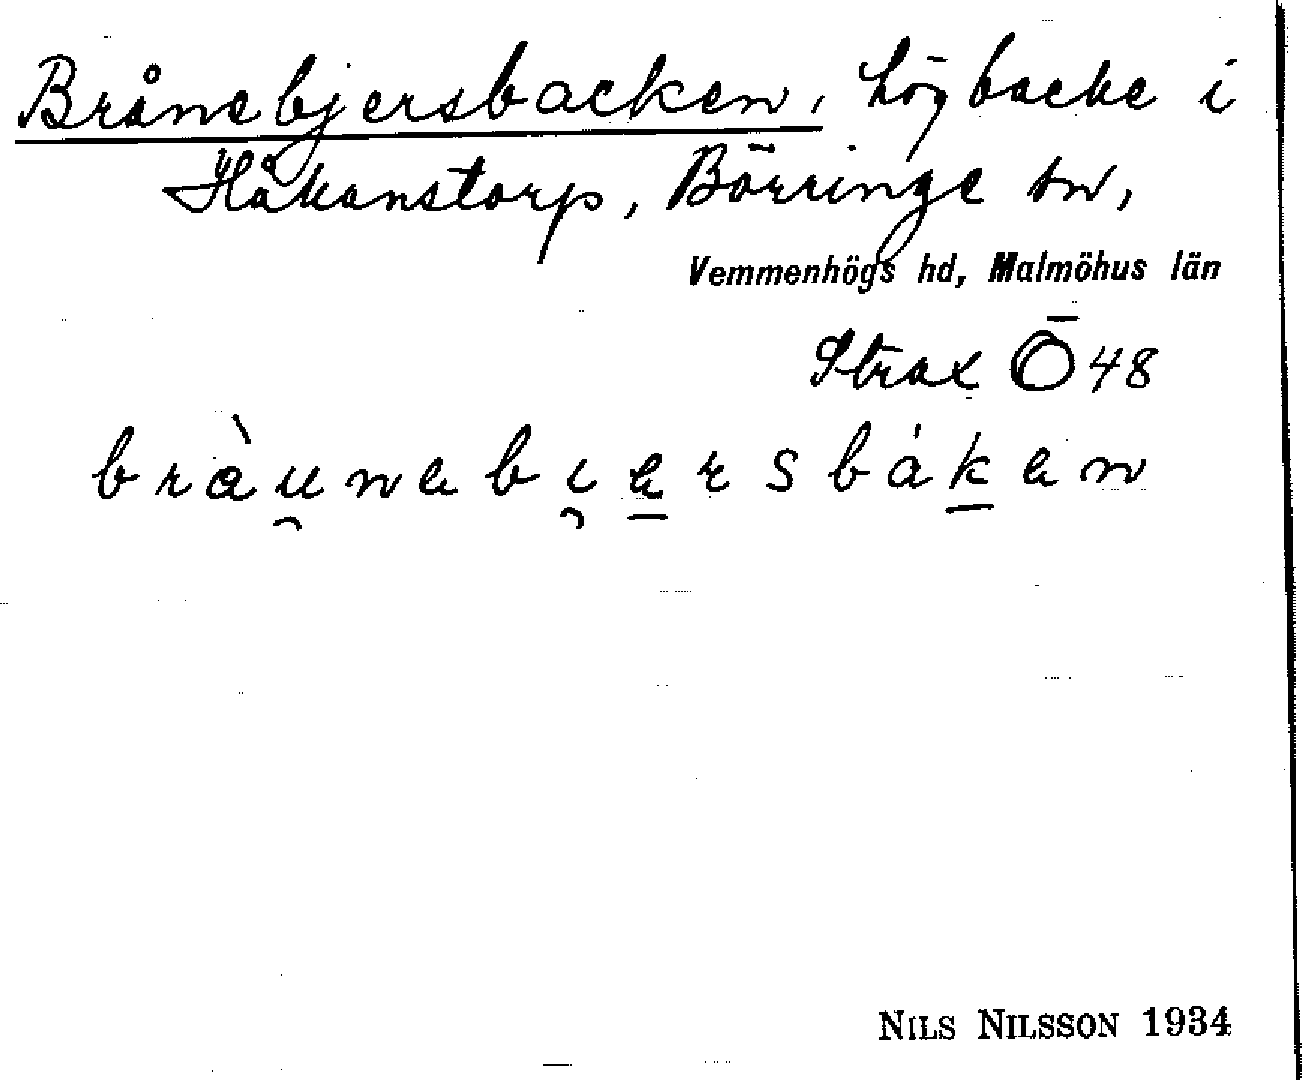 Brånebjersbacken, hög backe i
Håkanstorp, Börringe sn,
Vemmenhögs hd, Malmöhus län
Strax Ö 48
bràu̯nabi̯a̱rsbáḵan
NILS NILSSON 1934